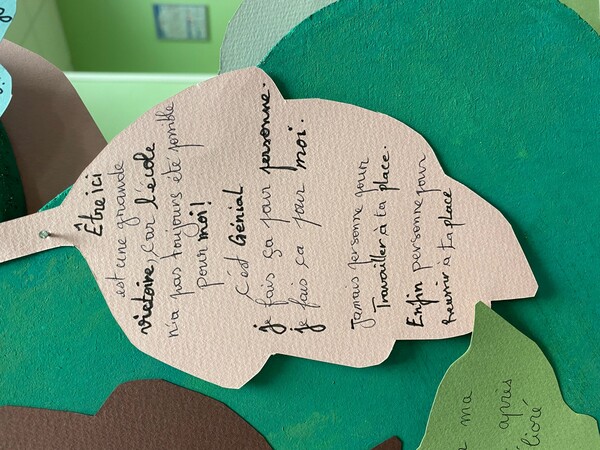 Être ici
est une grande
victoire, car l'école
n'a pas toujours été possible
pour moi!
C'est Génial
je fais ça pour personne.
je fais ça pour moi.
Jamais personne pour
Travailler à ta place.
Enfin personne pour
Reussir à ta place
ma
après
lioré